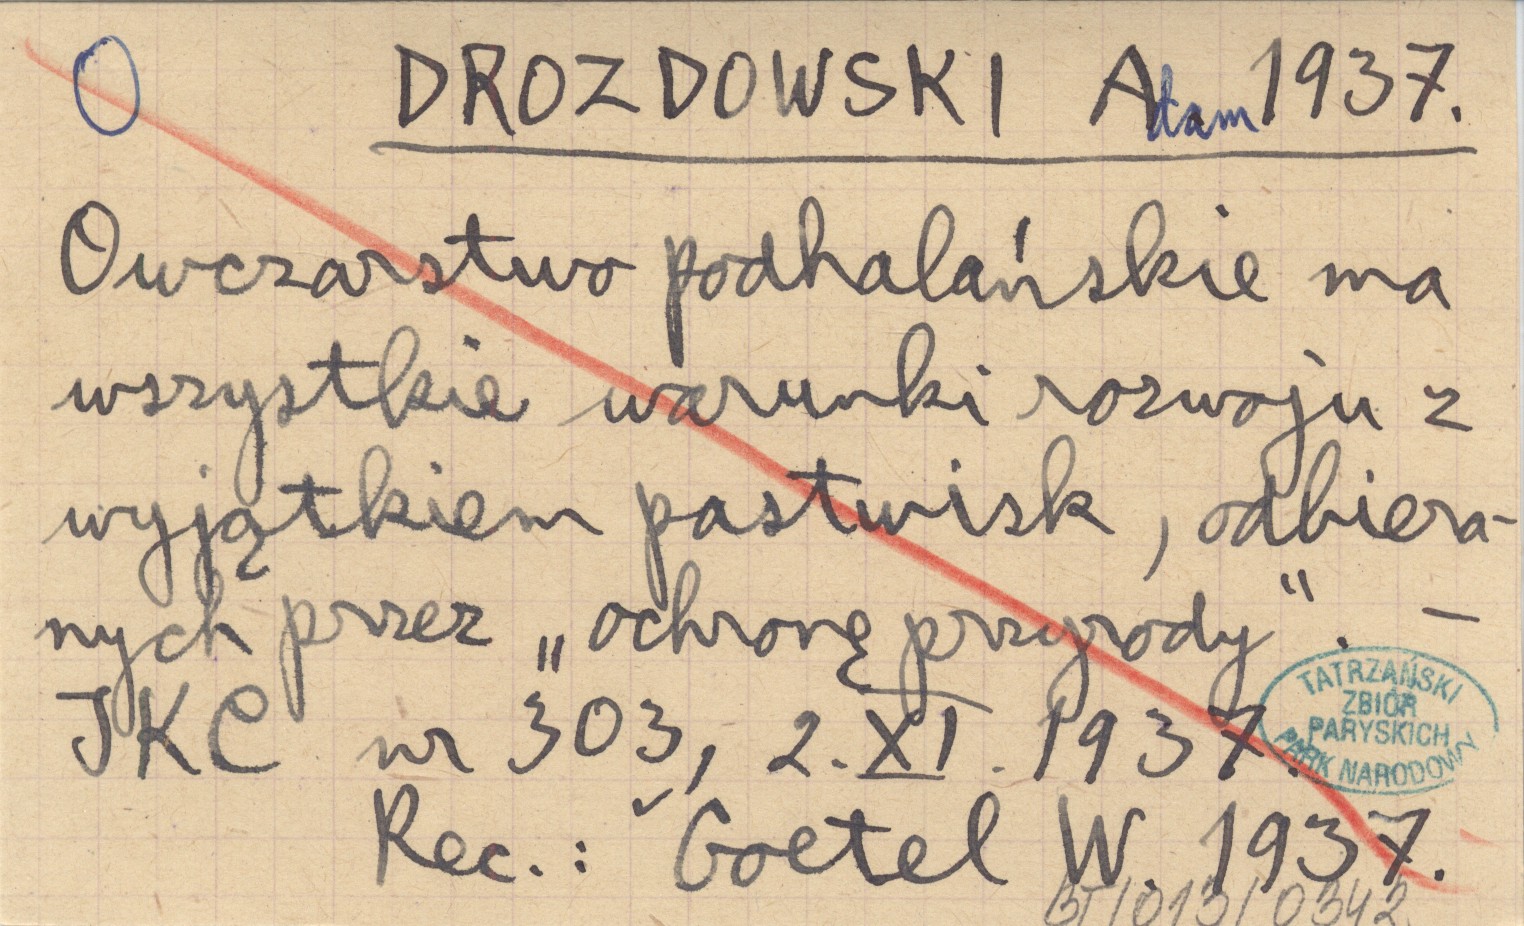 O DROZDOWSKI Adam 1937.
Owczarstwo podhalańskie ma
wszystkie warunki rozwoju z
wyjątkiem pastwisk, odbiera-
nych przez „ochronę przyrody". –
IKC nr 303, 2.XI.1937.
TATRZAŃSKI
ZBIÓR
PARYSKICH
PARK NARODOWY
Rec.: Goetel W. 1937.
BT/013/0342